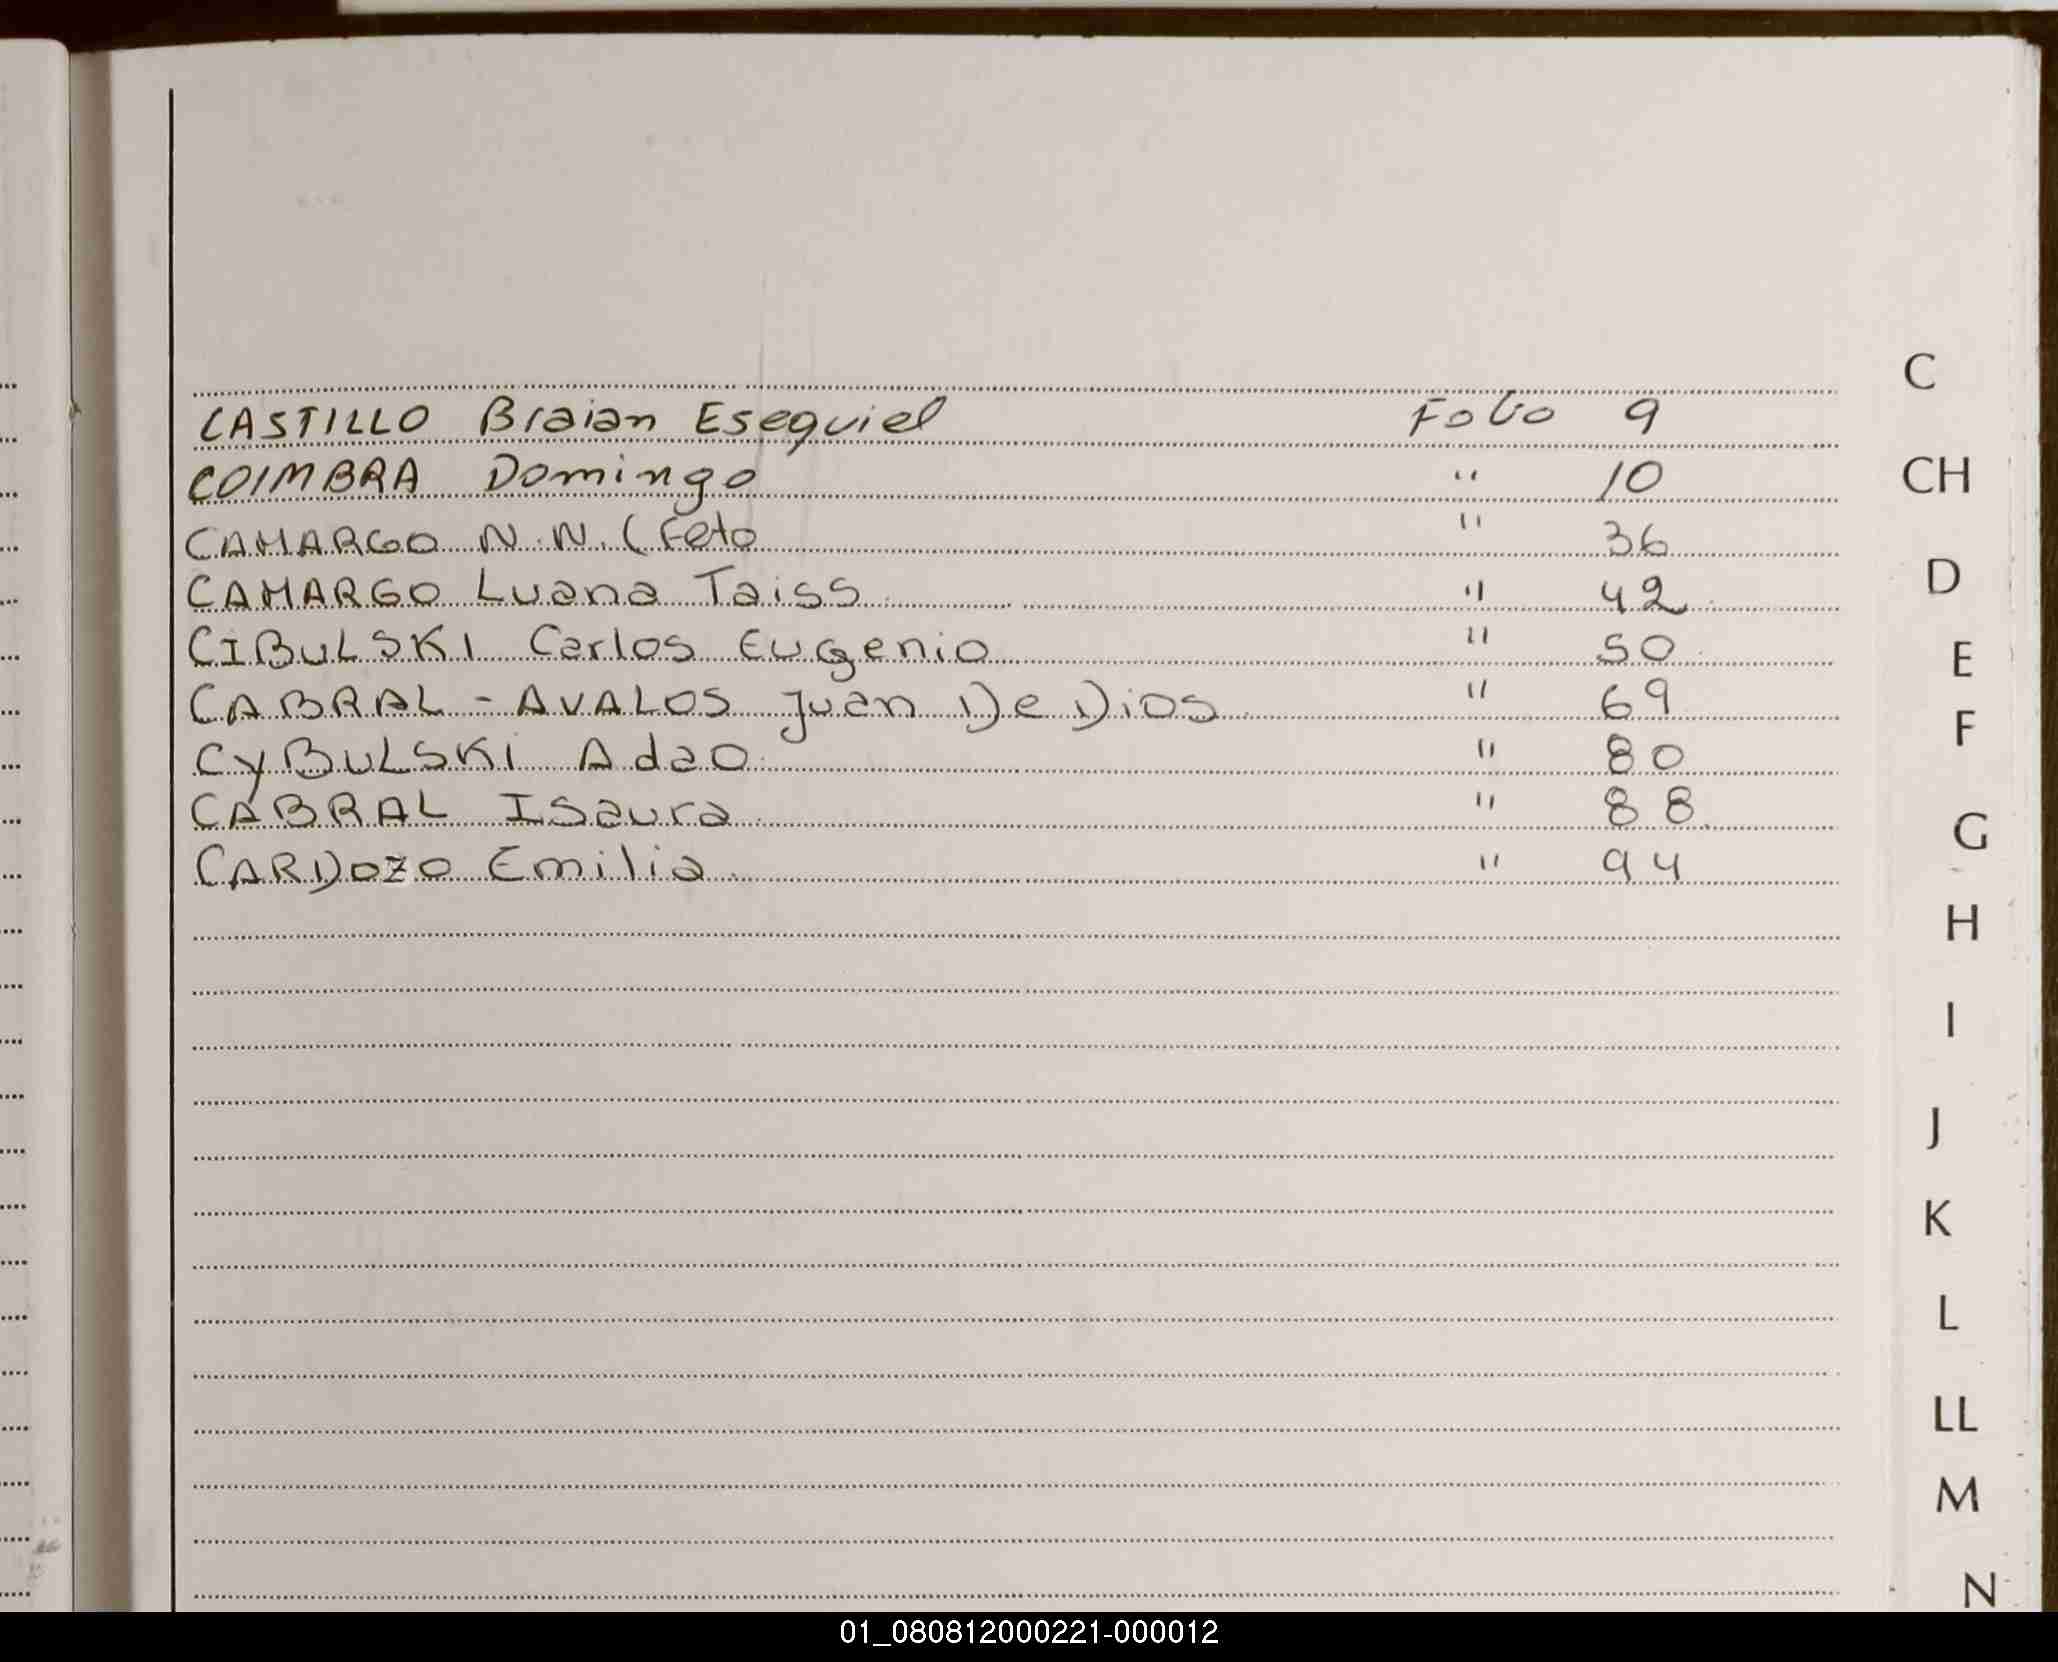 CASTILLO Braian Esequiel Folio 9
COIMBRA Domingo " 10
CAMARGO N.N. (Feto " 36
CAMARGO Luana Taiss " 42
CIBULSKI Carlos Eugenio " 50
CABRAL - AVALOS Juan De Dios " 69
CyBULSKi Adao " 80
CABRAL Isaura " 88
CARDOZO Emilia " 94
C
CH
D
E
F
G
H
I
J
K
L
LL
M
N
01_080812000221-000012